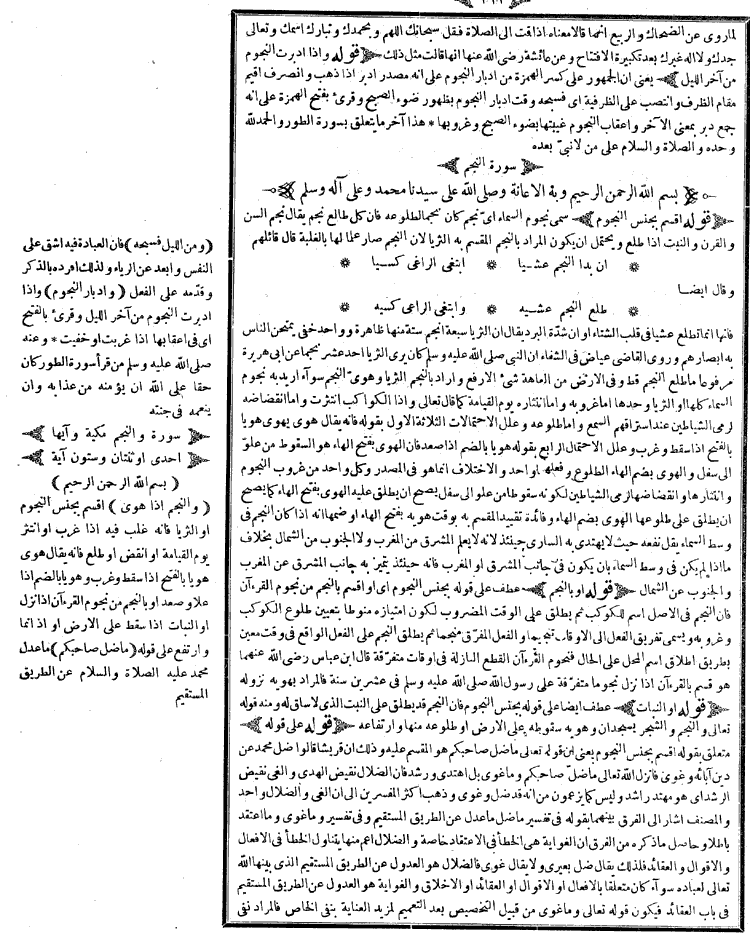 لماروى عن الضحاك والربيع انهما قالا معناه اذا قمت الى الصلاة فقل سبحانك اللهم وبحمدك وتبارك اسمك وتعالى
جدك ولا اله غيرك بعد تكبيرة الافتتاح وعن عائشة رضى الله عنها انها قالت مثل ذلك ﴿ قوله واذا ادبرت النجوم
من آخر الليل ﴾ يعنى ان الجمهور على كسر الهمزة من ادبار النجوم على انه مصدر ادبر اذا ذهب وانصرف اقيم
مقام الظرف وانتصب على الظرفية اى فسبحه وقت ادبار النجوم بظهور ضوء الصبح وقرئ بفتح الهمزة على انه
جمع دبر بمعنى الآخر واعقاب النجوم غيبتها بضوء الصبح وغروبها * هذا آخر ما يتعلق بسورة الطور والحمد لله
وحده والصلاة والسلام على من لا نبىّ بعده
﴿ سورة النجم ﴾
﴿ بسم الله الرحمن الرحيم وبه الاعانة وصلى الله على سيدنا محمد وعلى آله وسلم ﴾
﴿ قوله اقسم بجنس النجوم ﴾ سمى نجوم السماء اىّ نجم كان نجما لطلوعه فان كل طالع نجم يقال نجم السن
والقرن والنبت اذا طلع ويحتمل ان يكون المراد بالنجم المقسم به الثريا لان النجم صار علما لها بالغلبة قال قائلهم
* ان بدا النجم عشيا * ابتغى الراعى كسيا *
وقال ايضا
* طلع النجم عشيه * وابتغى الراعى كسيه *
فانها انما تطلع عشيا فى قلب الشتاء او ان شدة البرد يقال ان الثريا سبعة انجم ستة منها ظاهرة وواحد خفى يمتحن الناس
به ابصارهم وروى القاضى عياض فى الشفاء ان النبى صلى الله عليه وسلم كان يرى الثريا احد عشر نجما عن ابى هريرة
مرفوعا ما طلع النجم قط وفى الارض من العاهة شئ الا رفع واراد بالنجم الثريا وهوىّ النجم سوآء اريد به نجوم
السماء كلها او الثريا وحدها اما غروبه واما انتثاره يوم القيامة كما قال تعالى واذا الكواكب انتثرت واما انقضاضه
لرمى الشياطين عند استراقهم السمع واما طلوعه وعلل الاحتمالات الثلاثة الاول بقوله فانه يقال هوى يهوى هويا
بالفتح اذا سقط وغرب وعلل الاحتمال الرابع بقوله هويا بالضم اذا صعد فان الهوى بفتح الهاء هو السقوط من علوّ
الى سفل والهوى بضم الهاء الطلوع وفعلهما واحد والاختلاف انما هو فى المصدر وكل واحد من غروب النجوم
وانتثارها وانقضاضها لرمى الشياطين لكونه سقوطا من علو الى سفل يصح ان يطلق عليه الهوى بفتح الهاء كما يصح
ان يطلق على طلوعها الهوى بضم الهاء وفائدة تقييد المقسم به بوقت هويه بفتح الهاء او ضمها انه اذا كان النجم فى
وسط السماء يقل نفعه حيث لا يهتدى به السارى حينئذ لانه لا يعلم المشرق من المغرب ولا الجنوب من الشمال بخلاف
ما اذا لم يكن فى وسط السماء بان يكون فى جانب المشرق او المغرب فانه حينئذ يتميز به جانب المشرق عن المغرب
والجنوب عن الشمال ﴿ قوله او بالنجم ﴾ عطف على قوله بجنس النجوم اى او اقسم بالنجم من نجوم القرءآن
فان النجم فى الاصل اسم للكوكب ثم يطلق على الوقت المضروب لكون امتيازه منوطا بتعيين طلوع الكوكب
وغروبه ويسمى تفريق الفعل الى الاوقات تنجيما والفعل المفرّق منجما ثم يطلق النجم على الفعل الواقع فى وقت معين
بطريق اطلاق اسم المحل على الحال فنجوم القرءآن القطع النازلة فى اوقات متفرّقة قال ابن عباس رضى الله عنهما
هو قسم بالقرءآن اذا نزل نجوما متفرّقة على رسول الله صلى الله عليه وسلم فى عشرين سنة فالمراد بهويه نزوله
﴿ قوله او النبات ﴾ عطف ايضا على قوله بجنس النجوم فان النجم قد يطلق على النبت الذى لا ساق له ومنه قوله
تعالى والنجم والشجر يسجدان وهويه سقوطه على الارض او طلوعه منها وارتفاعه ﴿ قوله على قوله ﴾
متعلق بقوله اقسم بجنس النجوم يعنى ان قوله تعالى ما ضل صاحبكم هو المقسم عليه وذلك ان قريشا قالوا ضل محمد عن
دين آبائه وغوى فانزل الله تعالى ما ضل صاحبكم وما غوى بل اهتدى ورشد فان الضلال نقيض الهدى والغى نقيض
الرشد اى هو مهتد راشد وليس كما يزعمون من انه قد ضل وغوى وذهب اكثر المفسرين الى ان الغى والضلال واحد
والمصنف اشار الى الفرق بينهما بقوله فى تفسير ما ضل ما عدل عن الطريق المستقيم وفى تفسير وما غوى وما اعتقد
باطلا وحاصل ما ذكره من الفرق ان الغواية هى الخطأ فى الاعتقاد خاصة والضلال اعم منها يتناول الخطأ فى الافعال
والاقوال والعقائد فلذلك يقال ضل بعيرى ولا يقال غوى فالضلال هو العدول عن الطريق المستقيم الذى بينها الله
تعالى لعباده سوآء كان متعلقا بالافعال او الاقوال او العقائد او الاخلاق والغواية هو العدول عن الطريق المستقيم
فى باب العقائد فيكون قوله تعالى وما غوى من قبيل التخصيص بعد التعميم لمزيد العناية بنفى الخاص فالمراد نفى
(ومن الليل فسبحه) فان العبادة فيه اشق على
النفس وابعد عن الرياء ولذلك افرده بالذكر
وقدمه على الفعل (وادبار النجوم) واذا
ادبرت النجوم من آخر الليل وقرئ بالفتح
اى فى اعقابها اذا غربت او خفيت * وعنه
صلى الله عليه وسلم من قرأ سورة الطور كان
حقا على الله ان يؤمنه من عذابه وان
ينعمه فى جنته
﴿ سورة والنجم مكية وآيها ﴾
﴿ احدى او ثنتان وستون آية ﴾
(بسم الله الرحمن الرحيم)
(والنجم اذا هوى) اقسم بجنس النجوم
او الثريا فانه غلب فيه اذا غرب او انتثر
يوم القيامة او انقض او طلع فانه يقال هوى
هويا بالفتح اذا سقط وغرب وهويا بالضم اذا
علا وصعد او بالنجم من نجوم القرءآن اذا نزل
او النبات اذا سقط على الارض او اذا نما
وارتفع على قوله (ما ضل صاحبكم) ما عدل
محمد عليه الصلاة والسلام عن الطريق
المستقيم